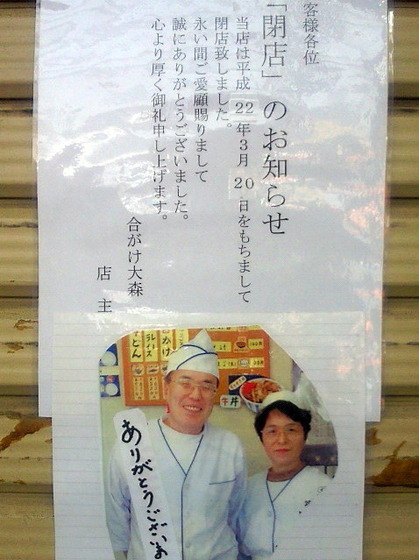 客様各位
「閉店」のお知らせ
当店は平成22年3月20日をもちまして
閉店致しました。
永い間ご愛顧賜りまして
誠にありがとうございました。
心より厚く御礼申し上げます。
合がけ大森
店主
牛丼
ありがとうございま